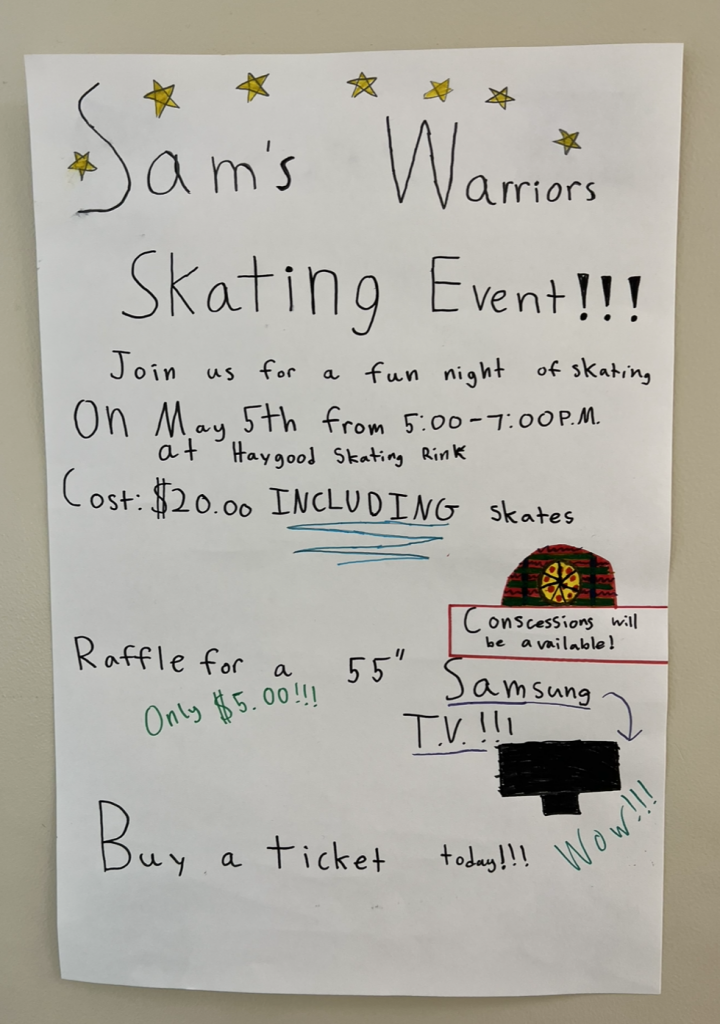 Sam's Warriors
Skating Event!!!
Join us for a fun night of skating
On May 5th from 5:00-7:00P.M.
at Haygood Skating Rink
Cost: $20.00 INCLUDING skates
Conscessions will
be available!
Raffle for a 55" Samsung
Only $5.00!!!
T.V.!!!
Wow!!!
Buy a ticket today!!!